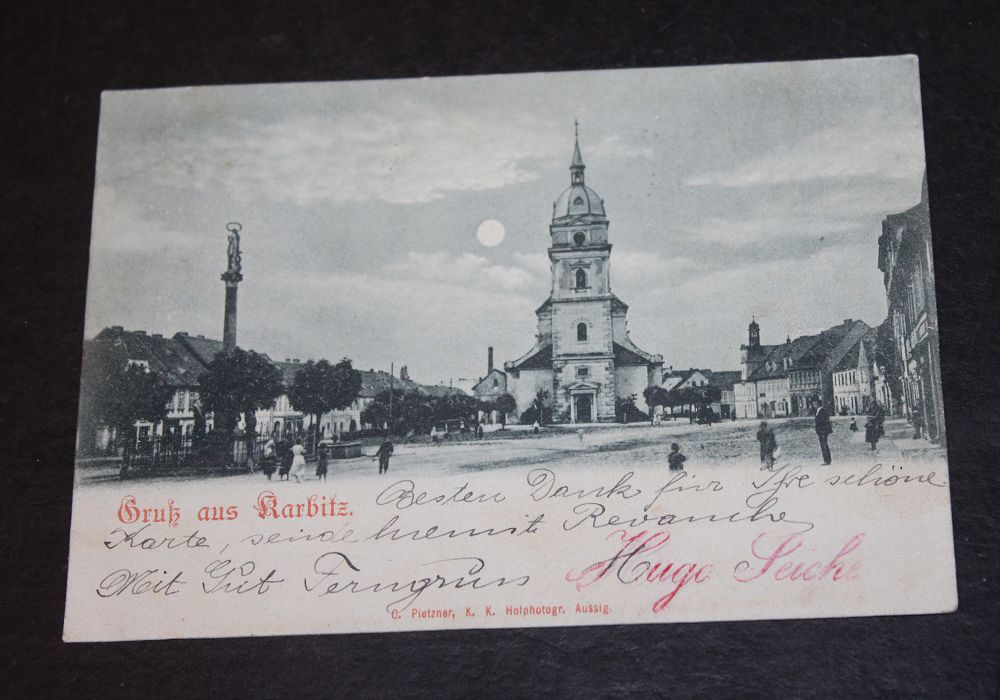 Gruß aus Karbitz. Besten Dank für Ihre schöne
Karte, sende hiemit Revanche
Mit Gut Ferngruss Hugo Seiche
C. Pietzner, K. K. Hofphotogr. Aussig.